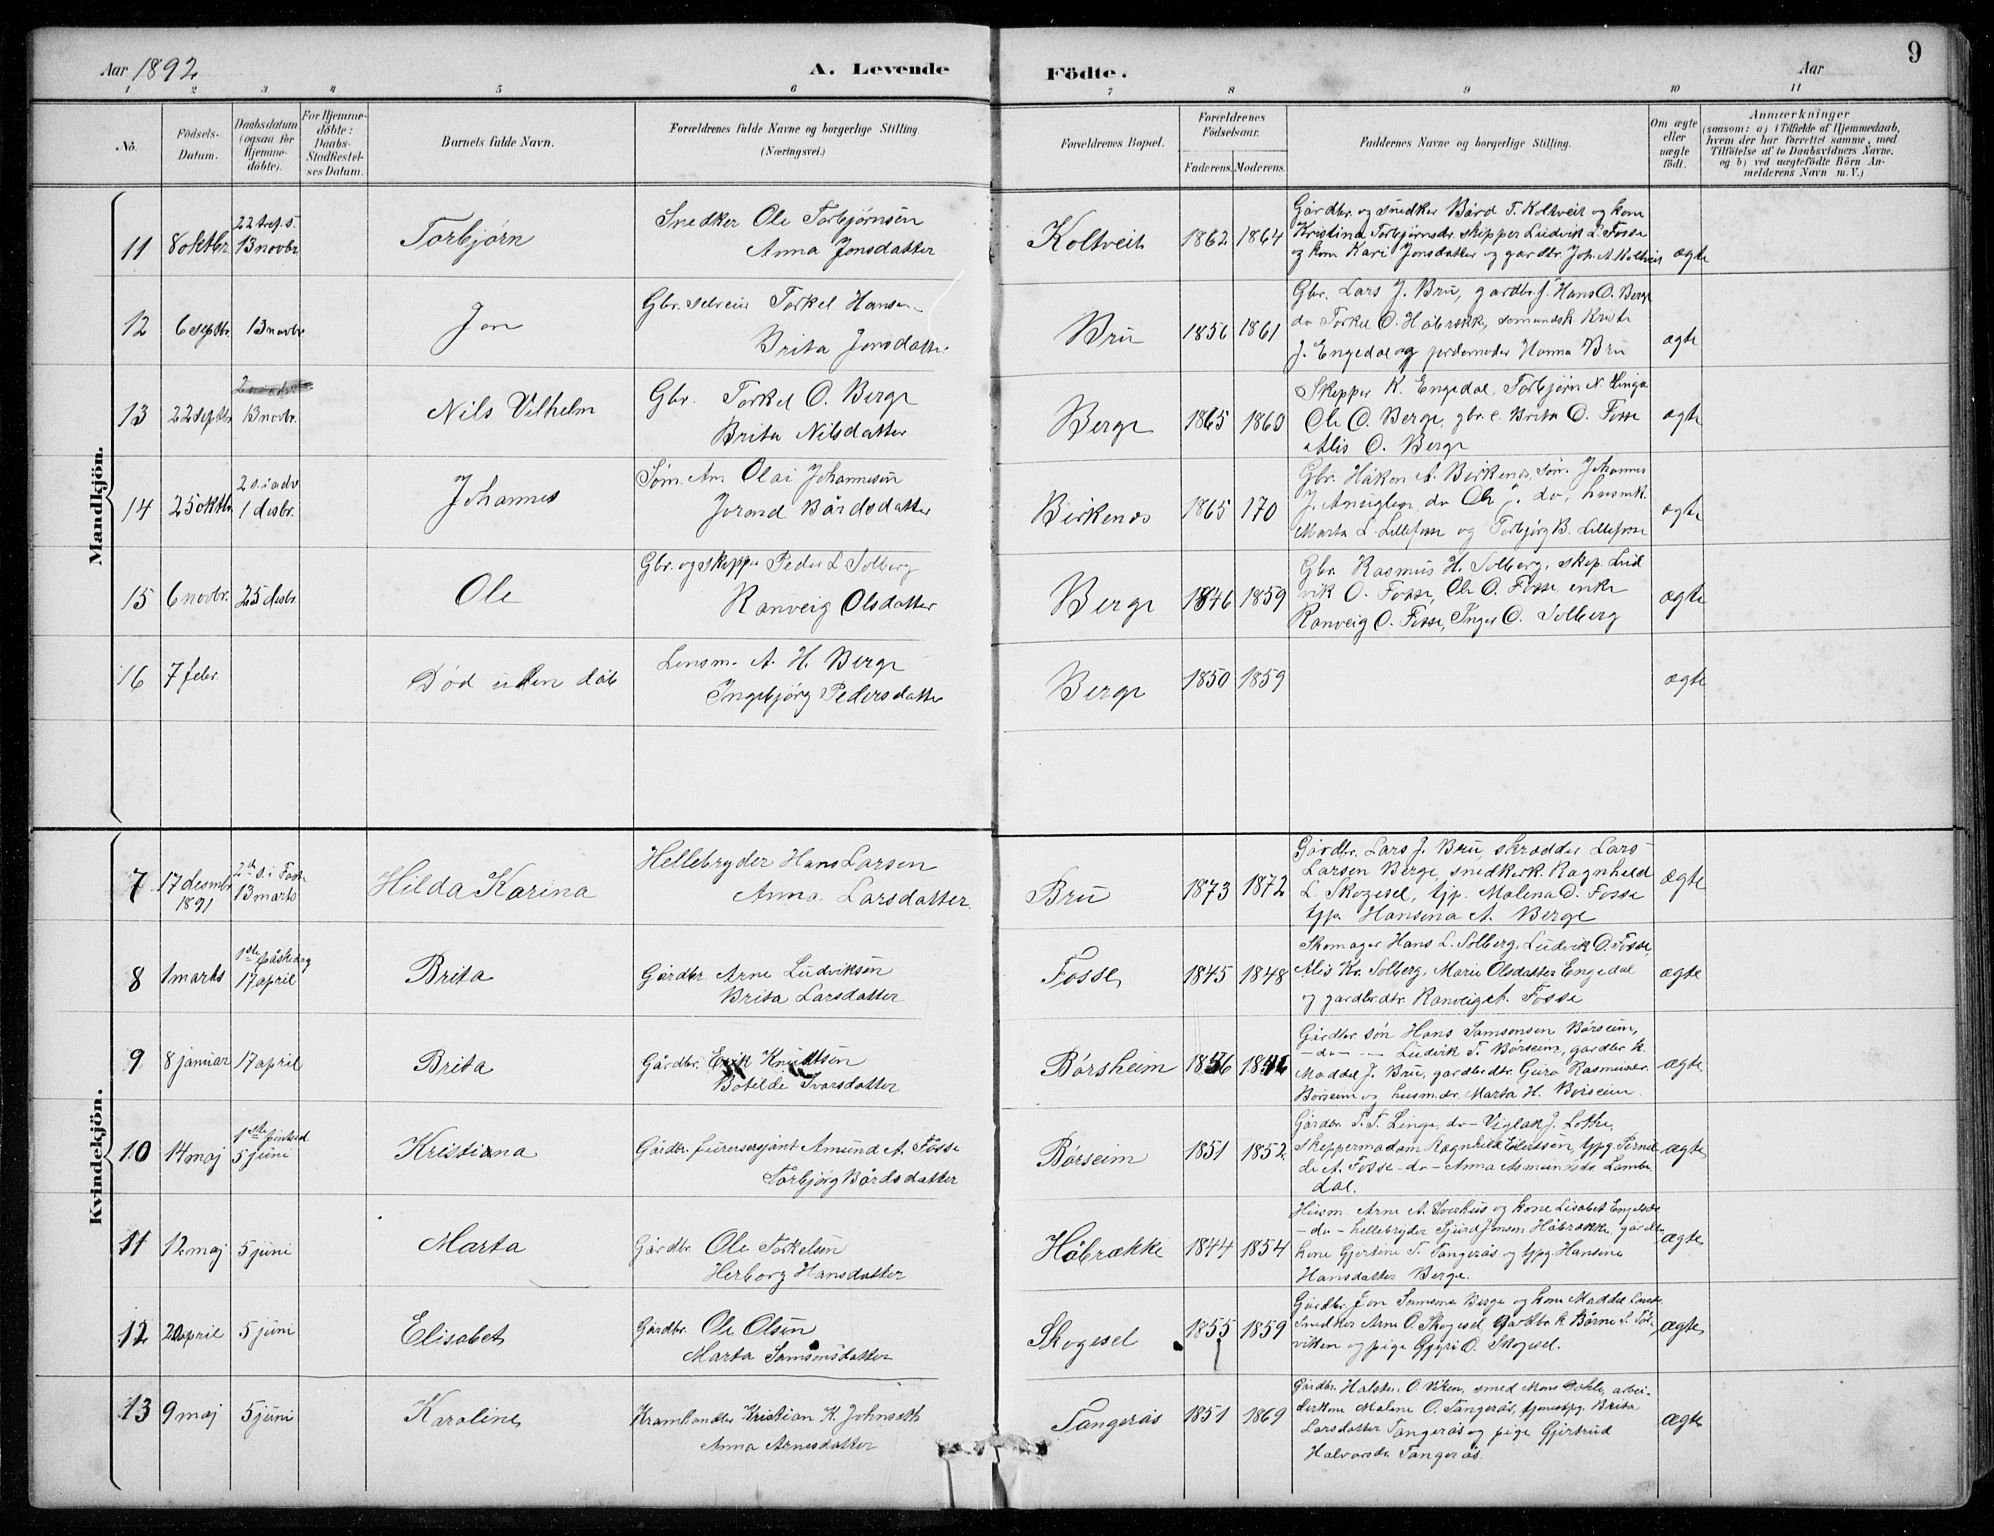 Aar 1892
A. Levende
Födte.
Aar
9
1 2 3 4 5 6 7 8 9 10 11
No.
Födsels-
Datum.
Daabsdatum
(ogsaa for
Hjemme-
döbte).
For Hjemme-
döbte:
Daabs-
Stadfæstel-
ses Datum.
Barnets fulde Navn.
Forældrenes fulde Navne og borgerlige Stilling.
(Næringsvei.)
Forældrenes Bopæl.
Forældrenes
Födselsaar.
Faderens.
Moderens.
Faddernes Navne og borgerlige Stilling.
Om ægte
eller
uægte
födt.
Anmærkninger
(saasom: a) i Tilfælde af Hjemmedaab,
hvem der har forrettet samme, med
Tilföielse af to Daabsvidners Navne.
og b) ved uægtefödte Börn An-
melderens Navn m. V.)
Mandkjön.
11 8 oktbr. 22 tref. s. 13 novbr
Torbjørn
Snedker Ole Torbjørnsen
Anna Jonsdatter
Koltveit 1862 1864
Gårdbr. og snedker Bård T. Koltveit og kone
Kristina Torbjørnsdr. skipper Ludvik L. Fosse
og kone Kari Jonsdatter og gardbr. Joh. A. Koltveit
ægte
12 6 septbr. 13 novbr
Jon
Gbr. Torkel Hansen
Brita Jonsdatter
Bru 1856 1861
Gbr. Lars J. Bru, gardbr. f. Hans O. Berge
do Torkel O. Håbrekk,
J. Engedal og jordemoder Hanna Bru
ægte
13 22 septbr. 13 novbr.
Nils Vilhelm
Gbr. Torkel O. Berge
Brita Nilsdatter
Berge 1865 1860
Skipper K. Engedal, Torbjørn N. Linga
Ole O. Berge, gbr. e. Brita O. Fosse
Alis O. Berge
ægte
14 25 oktbr. 2 s. i adv 1 desbr.
Johannes
Søm. Am. Olai Johannesen
Jorand Bårdsdatter
Birkenes 1865 170
Gbr. Håken A. Birkenes, søm. Johannes
J. do Ole J. do, husmk.
Marta L. Lillefosse og Torbjørg B. Lillefosse
ægte
15 6 novbr. 25 desbr.
Ole
Gbr. og skipper Peder L Solberg
Ranveig Olsdatter
Berge 1846 1859
Gbr. Rasmus H. Solberg, skip. Lud
vik O. Fosse, Ole O. Fosse, enke
Ranveig O. Fosse, Inger O. Solberg
ægte
16 7 febr.
Død uden dåb
Lensm. A. H. Berge
Ingebjørg Pedersdatter
Berge 1850 1859
ægte
Kvindekjön.
7 17 desmbr 1891 2d s. i Faste 13 marts
Hilda Karina
Hellebryder Hans Larsen
Anna Larsdatter
Bru 1873 1872
Gårdbr. Lars J. Bru, skrædder Lars
Larsen Berge, snedkerk. Ragnhild
L. Skogesel, tjp. Malena O. Fosse
tjp. Hansina A. Berge
ægte
8 1 marts 1ste påskedag 17 april
Brita
Gårdbr. Arne Ludviksen
Brita Larsdatter
Fosse 1845 1848
Skomager Hans L. Solberg, Ludvik O. Fosse,
Alis Kr. Solberg, Marie Olsdatter Engedal
og gardbrdtr. Ranveig A. Fosse
ægte
9 8 januar 17 april
Brita
Gårdbr. Erik Knudtsen
Botilde Ivarsdatter
Børsheim 1856
Gårdbr. søn Hans Samsonsen Børseim,
- do - - Ludvik T. Børseim, gardbr. k.
Maddel J. Bru, gardbrdtr. Guro Rasmusdr.
Børseim og husm.dr. Marta H. Børseim.
ægte
10 14 maj 1ste pintsed 5 juni
Kristiana
Gårdbr. furersersjant Amund A. Fosse
Torbjørg Bårdsdatter
Børseim 1851 1852
Gårdbr. T. T. Linge, do - Viglak J. Lothe,
skippermadam Ragnhild Eilertsen, tjpg. Pernil
de A. Fosse - do - Anna Asmundsda. Lambe
dal.
ægte
11 12 maj 5 juni
Marta
Gårdbr. Ole Torkelsen
Herborg Hansdatter
Håbrække 1844 1854
Husm. Arne A. og kone Lisabet Engelsdr.
- do - hellebryder Sjurd Jonsen Håbrække, gårdbr.
kone Gjertine T. Tangerås og tjpg. Hansine
Hansdatter Berge.
ægte
12 20 april 5 juni
Elisabet
Gårdbr. Ole Olsen
Marta Samsonsdatter
Skogesel 1855 1859
Gårdbr. Jon Berge og kone Maddel
Snedker Arne O. Skogesel Gardbr. k. Børne T. Tol-
viken og pige Gyyri O. Skogesel.
ægte
13 9 maj 5 juni
Karoline
Kramhandler Kristian K. Johnseth
Anna Arnesdatter
Tangerås 1851 1869
Gårdbr. Halster O. Viken, smed Mons Dohle, arbei-
derkone Malene O. Tangerås, tjenestpg. Brita
Larsdatter Tangerås og pige Gjertrud
Halvorsdr. Tangerås.
ægte